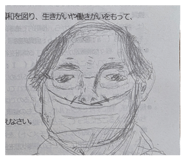 和を図り、生きがいや働きがいをもって、
えなさい。